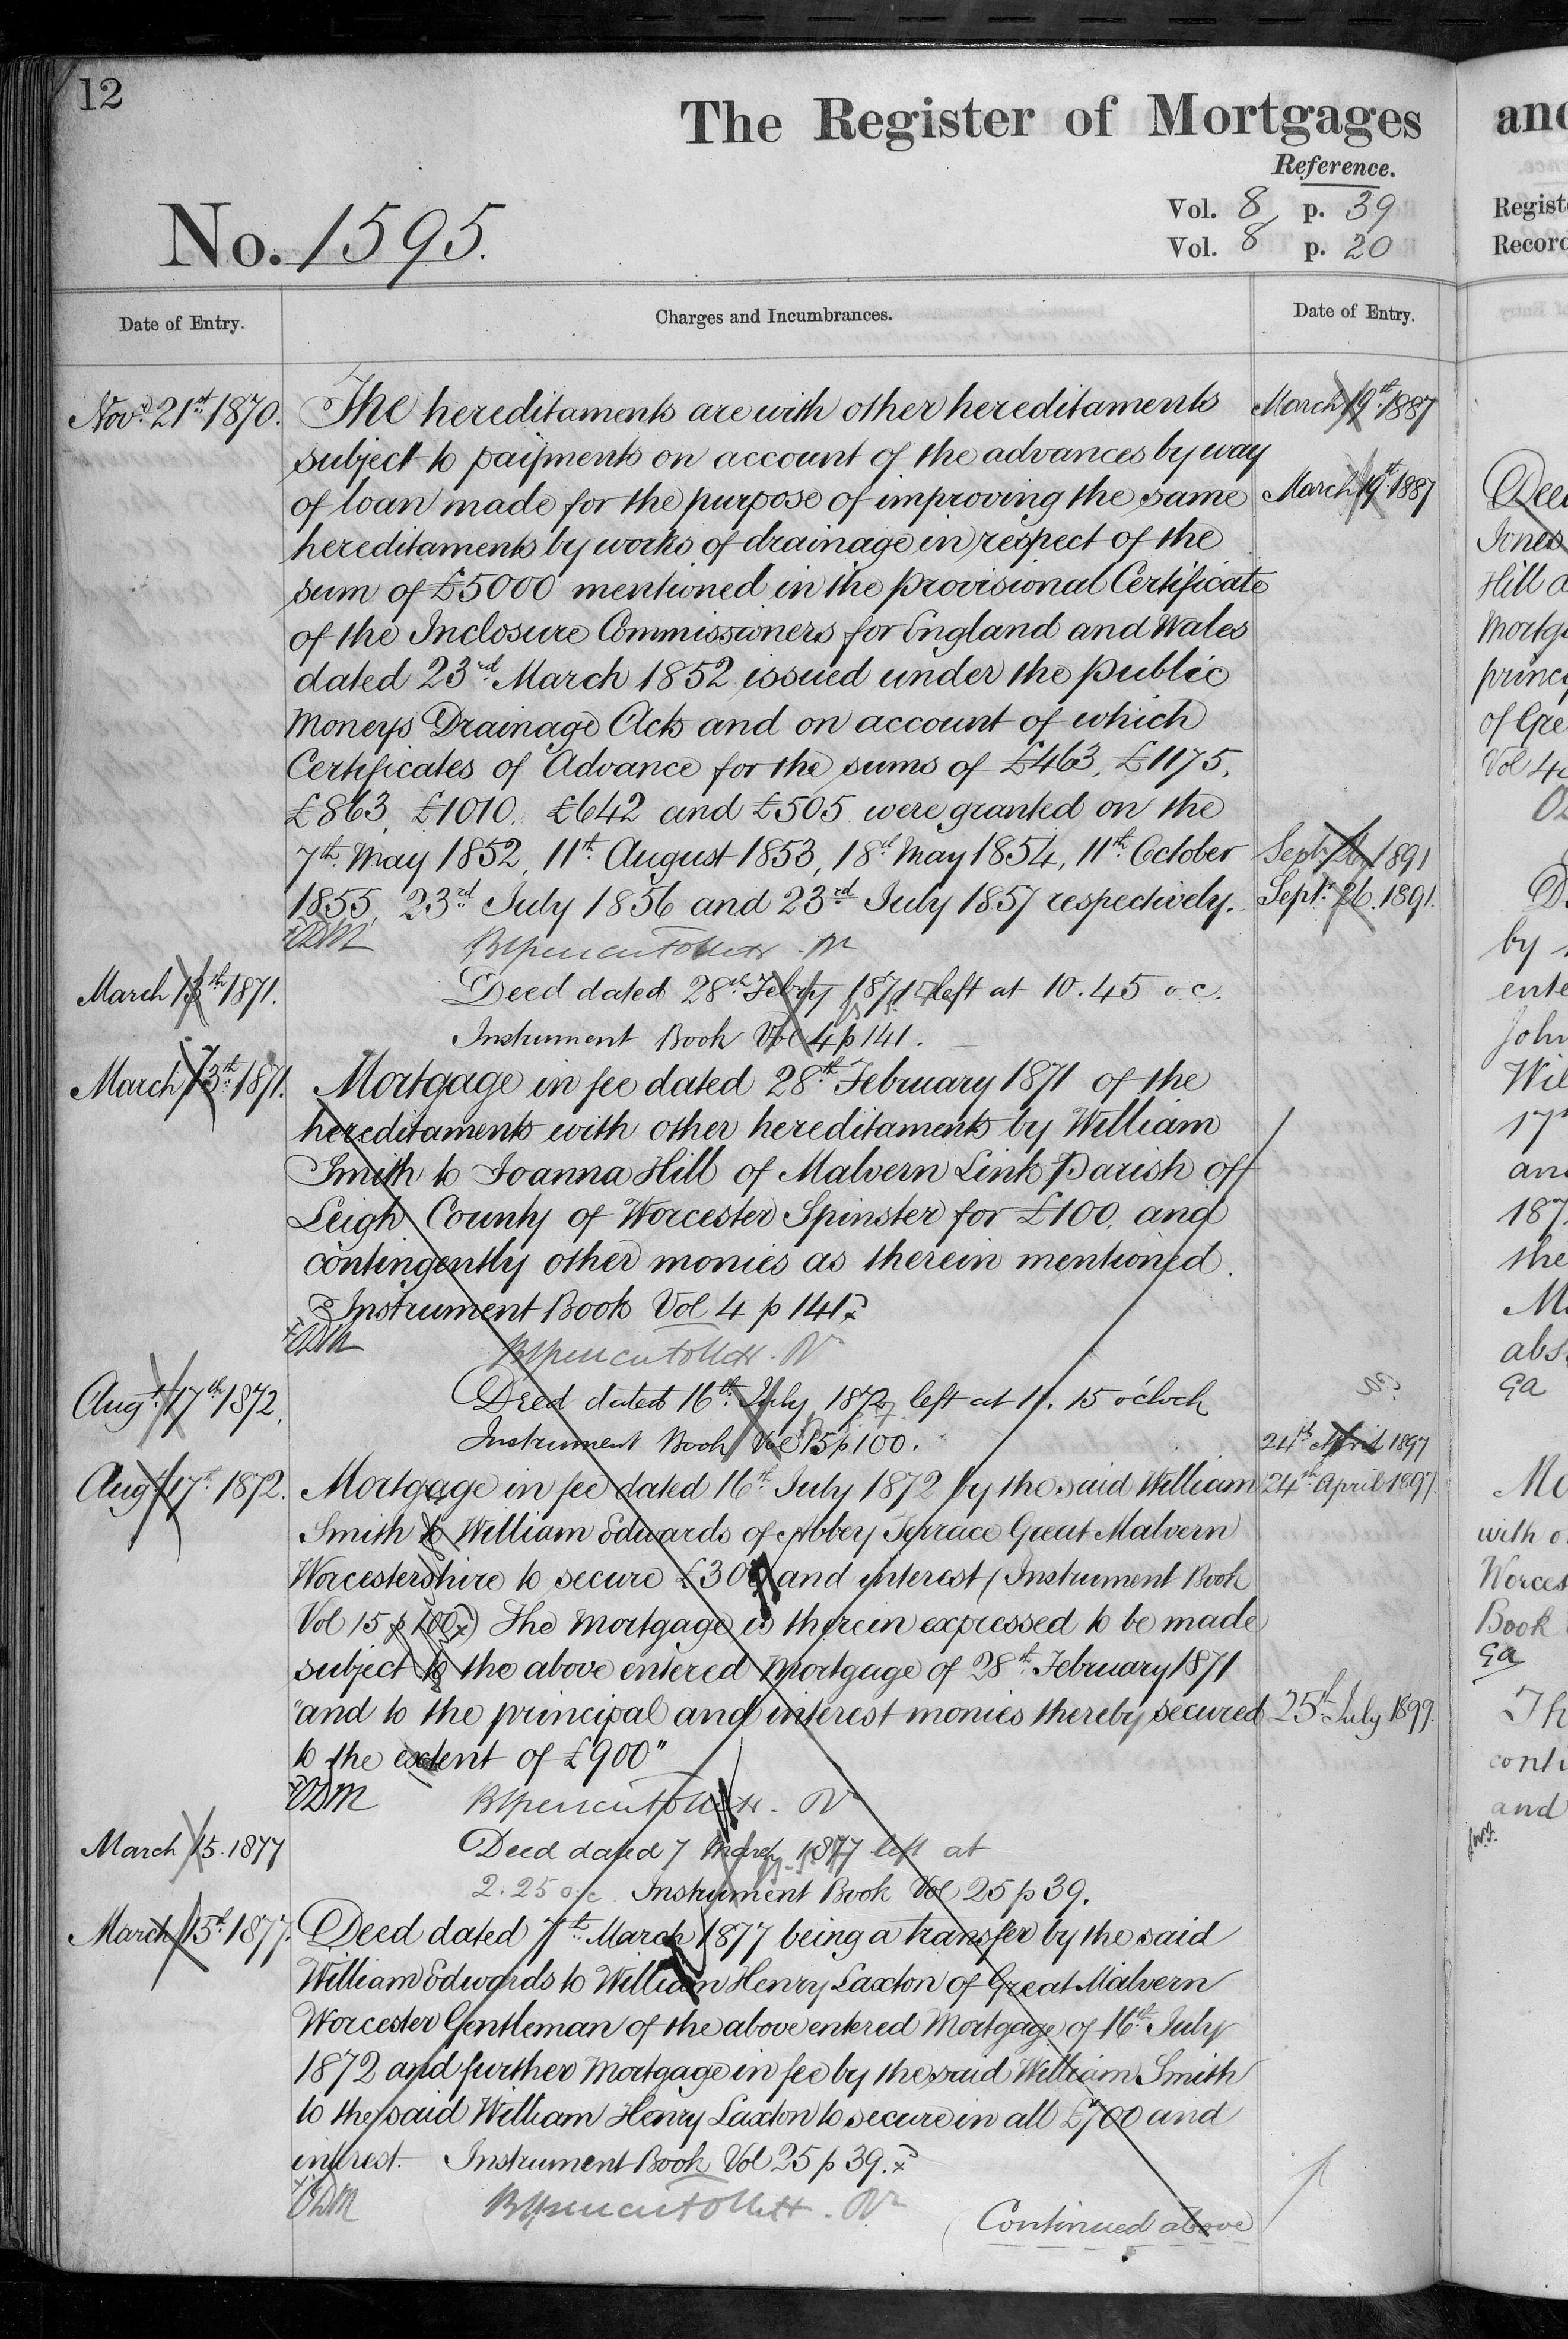 12
The Register of Mortgages
Reference.
Vol. 8 p. 39
Vol. 8 p. 20
No. 1595.
Date of Entry.
Charges and Incumbrances.
Date of Entry.
Nov. 21st 1870. The hereditaments are with other hereditaments
subject to payments on account of the advances by way
of loan made for the purpose of improving the same
hereditaments by works of drainage in respect of the
sum of £5000 mentioned in the provisional Certificate
of the Inclosure Commissioners for England and Wales
dated 23rd March 1852 issued under the public
Moneys Drainage Acts and on account of which
Certificates of Advance for the sums of £463, £1175,
£863, £1010. £642 and £505 were granted on the
7th May 1852, 11th August 1853, 18th May 1854, 11th October
1855, 23rd July 1856 and 23rd July 1857 respectively.
March 13th 1871. Deed dated 28th Febry 1871 left at 10.45 o.c.
Instrument Book Vol 4 p 141.
March 13th 1871. Mortgage in fee dated 28th February 1871 of the
hereditaments with other hereditaments by William
Smith to Joanna Hill of Malvern Link Parish of
Leigh County of Worcester Spinster for £100. and
contingently other monies as therein mentioned.
Instrument Book Vol 4 p 141
Augt. 17th 1872. Deed dated 16th July 1872 left at 11.15 o'clock
Instrument Book Vol 15 p 100.
Augt 17th 1872. Mortgage in fee dated 16th July 1872 by the said William
Smith to William Edwards of Abbey Terrace Great Malvern
Worcestershire to secure £300 and interest (Instrument Book
Vol 15 p 100) The Mortgage is therein expressed to be made
subject to the above entered Mortgage of 28th February 1871
"and to the principal and interest monies thereby secured
to the extent of £900"
March 15. 1877 Deed dated 7 March 1877 left at
2.25 o.c. Instrument Book Vol 25 p 39.
March 15th 1877. Deed dated 7th March 1877 being a transfer by the said
William Edwards to William Henry Laxton of Great Malvern
Worcester Gentleman of the above entered Mortgage of 16th July
1872 and further Mortgage in fee by the said William Smith
to the said William Henry Laxton to secure in all £700 and
interest. Instrument Book Vol 25 p 39.
Continued above
March 19th 1887
March 19th 1887
Sept. 26, 1891
Sept. 26. 1891.
24th April 1897
24th April 1897.
25th July 1899.
and
Regist
Record
Dee
Jones
Hill a
Mortg
princ
of Gre
Vol 4
by
ente
John
Wil
17th
and
187
the
abs
Mo
with o
Worces
Book
Th
conti
and